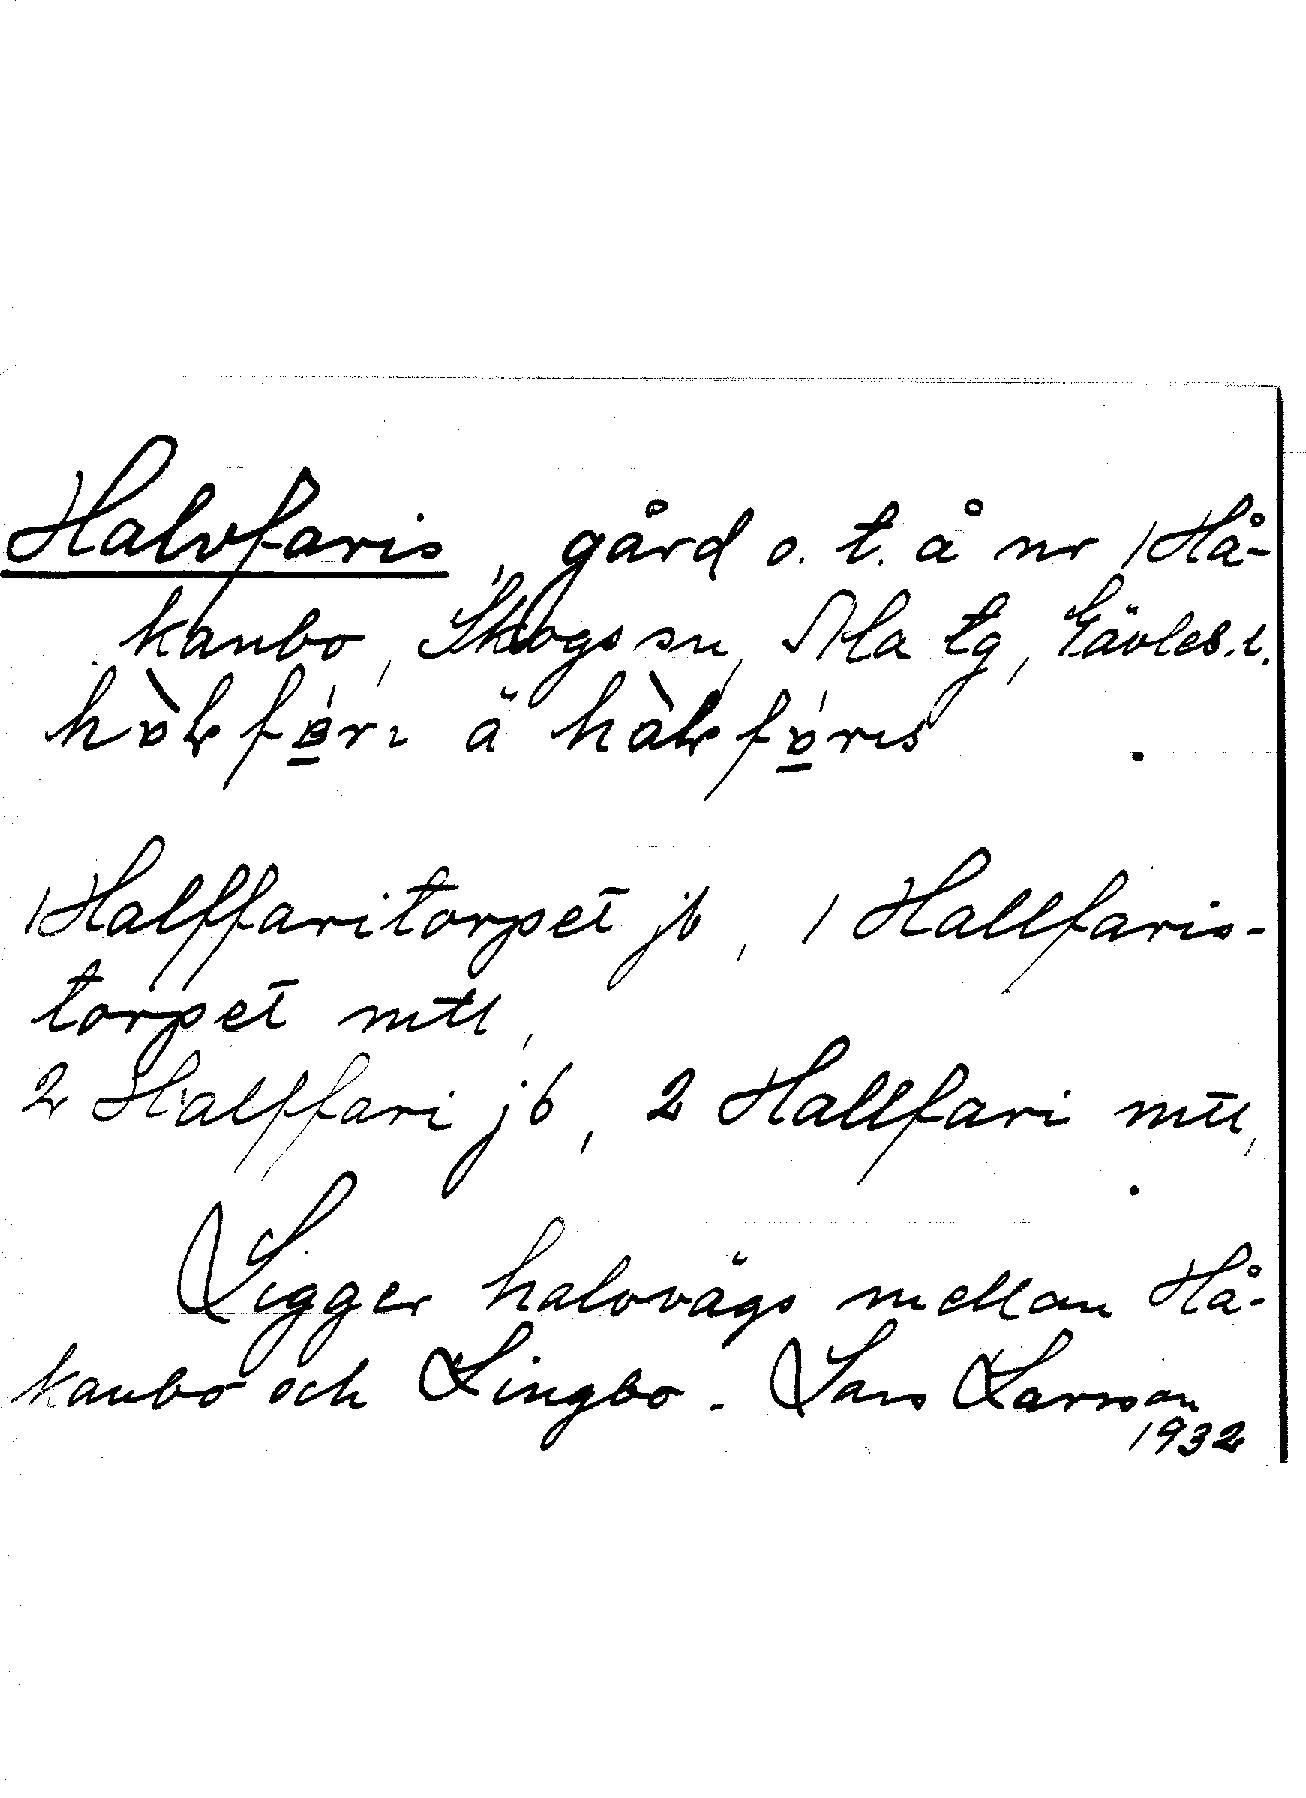 Halvfaris, gård o. t. å nr 1 Hå-
kanbo, Skogs sn, Ala tg, Gävleb. l.
ä
1 Halffaritorpet jb, 1 Hallfaris-
torpet mtl,
2 Halffari jb, 2 Hallfari mtl,
Ligger halvvägs mellan Hå-
kanbo och Lingbo. Lars Larsson
1932